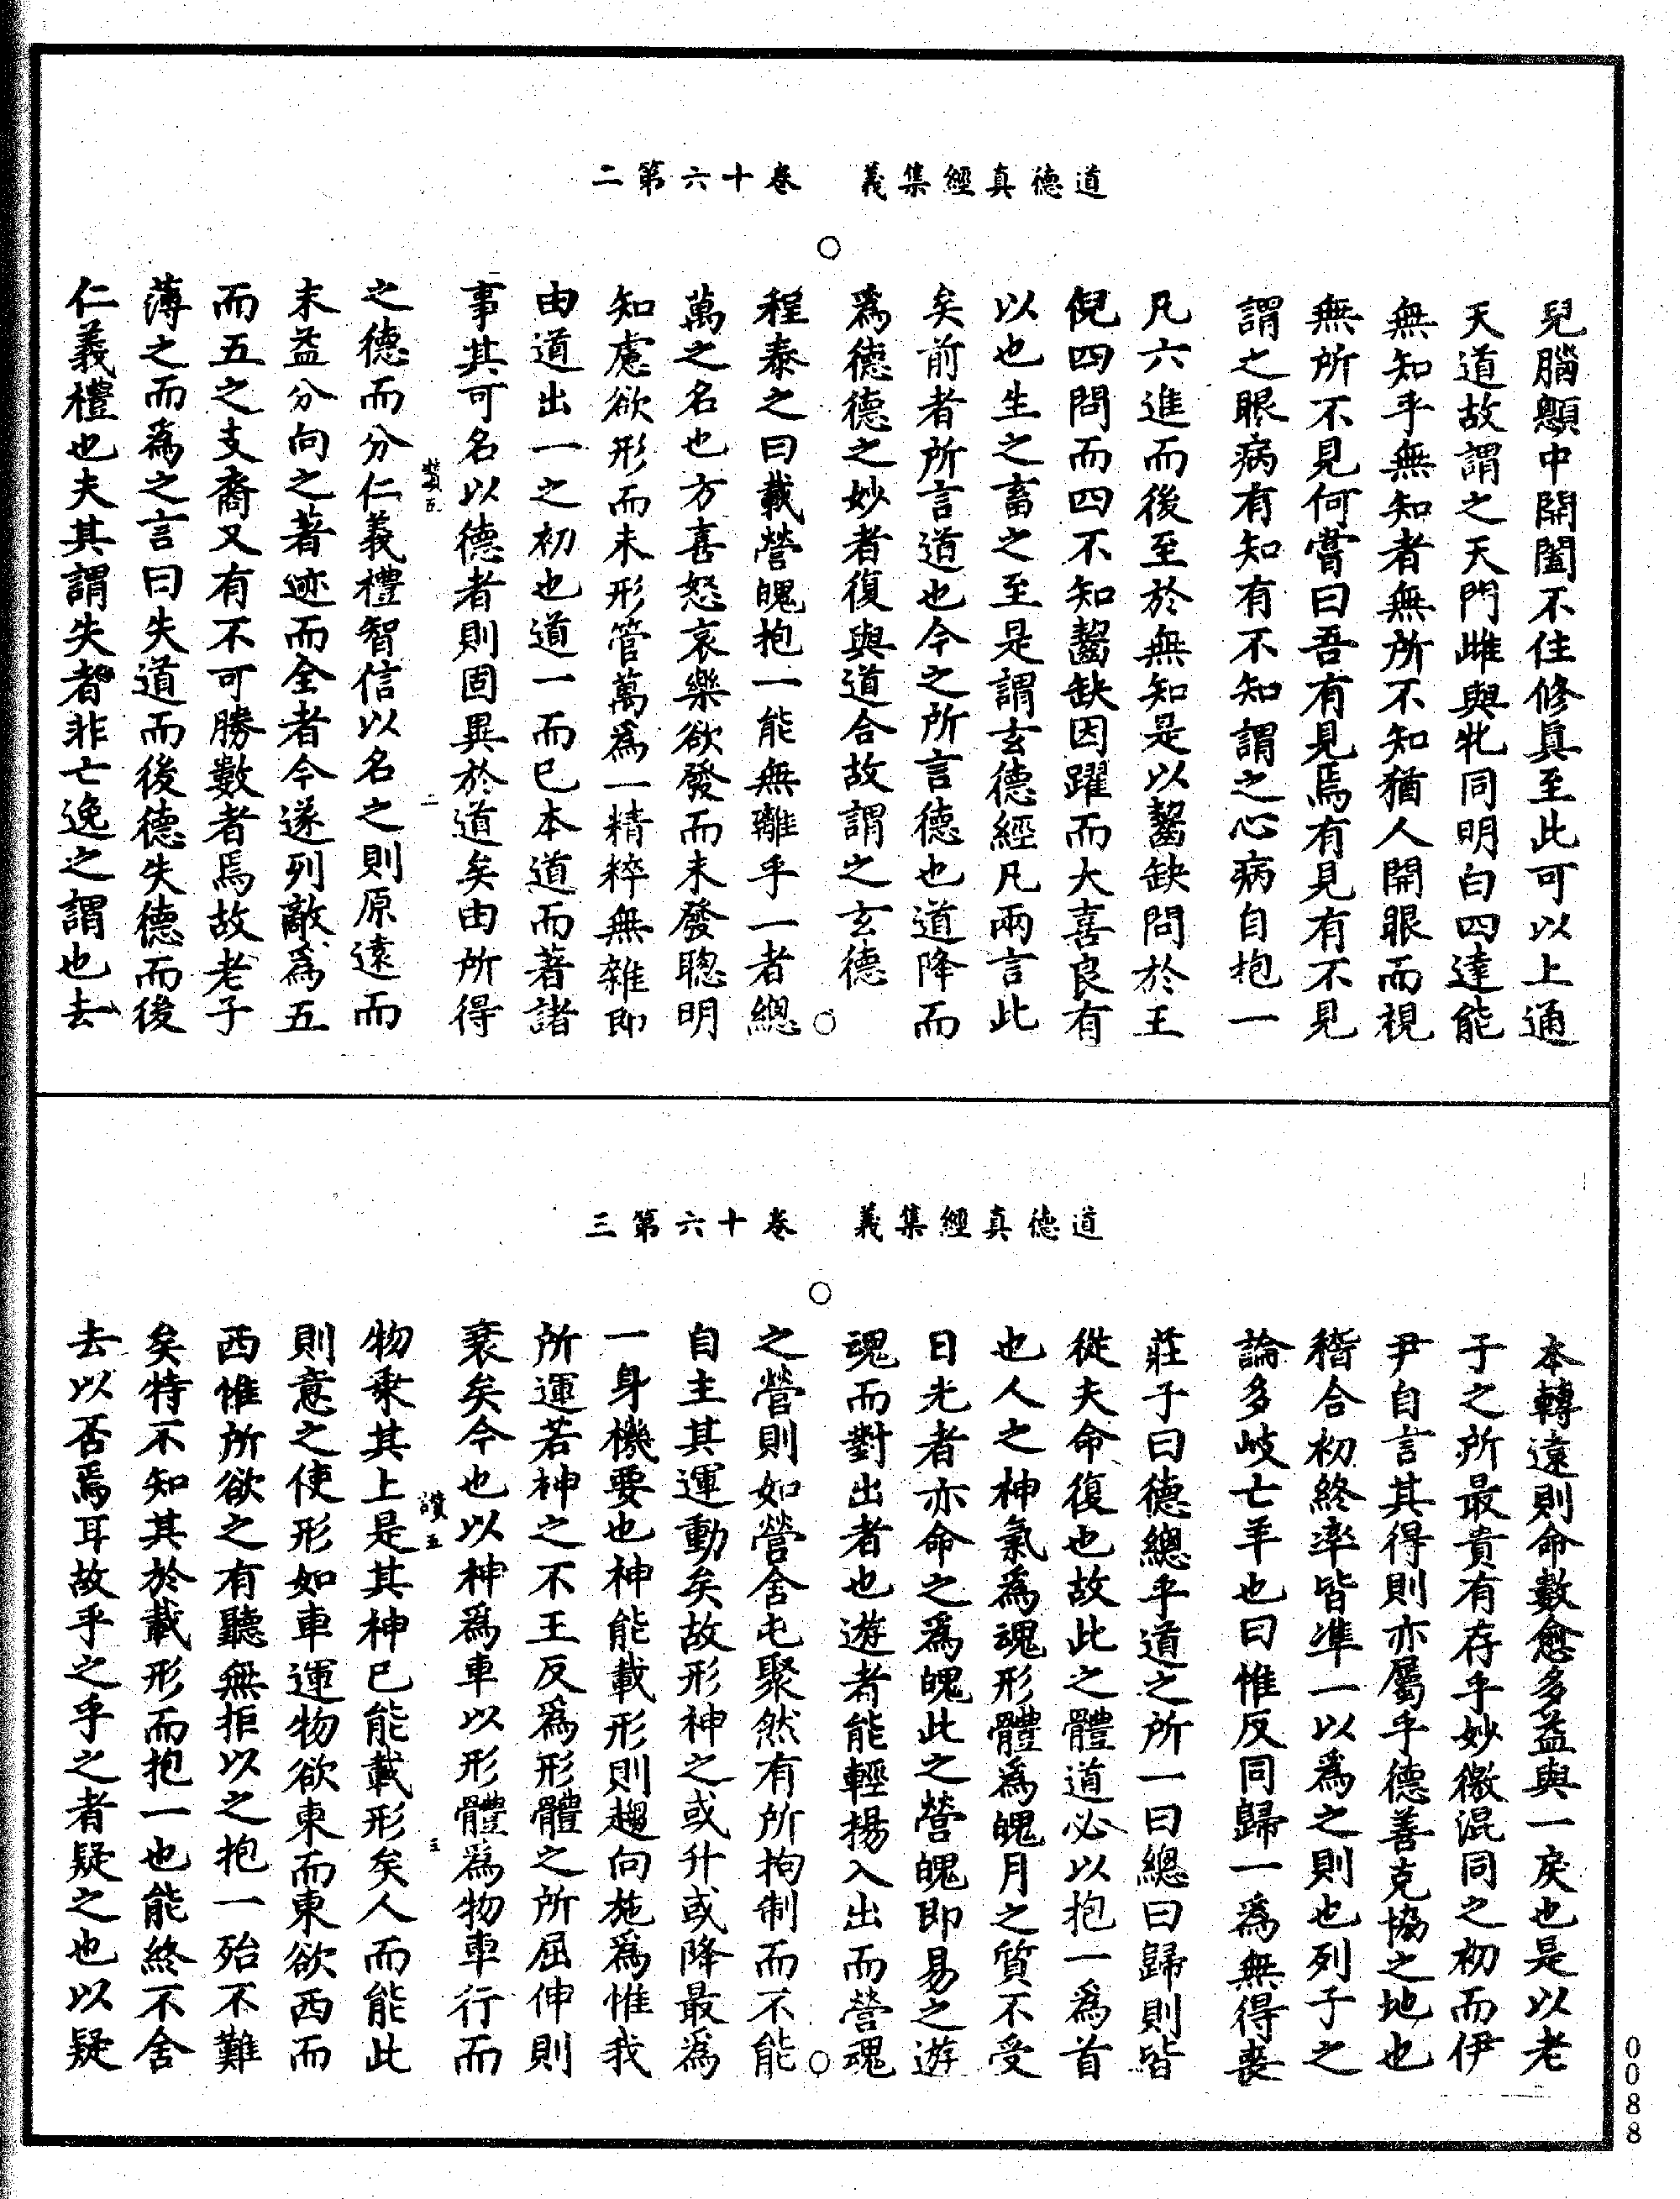 道德真經集義　卷十六第二
兒腦顖中開闔不住修真至此可以上通
天道故謂之天門雌與牝同明白四達能
無知乎無知者無所不知猶人開眼而視
無所不見何嘗曰吾有見焉有見有不見
謂之眼病有知有不知謂之心病自抱一
凡六進而後至於無知是以齧缺問於王
倪四問而四不知齧缺因躍而大喜良有
以也生之畜之至是謂玄德經凡兩言此
矣前者所言道也今之所言德也道降而
爲德德之妙者復與道合故謂之玄德
○
程泰之曰載營魄抱一能無離乎一者總
萬之名也方喜怒哀樂欲發而未發聰明
知慮欲形而未形管萬爲一精粹無雜即
由道出一之初也道一而已本道而著諸
事其可名以德者則固異於道矣由所得
二
之德而分仁義禮智信以名之則原遠而
末益分向之著迹而全者今遂列敵爲五
而五之支裔又有不可勝數者焉故老子
薄之而爲之言曰失道而後德失德而後
仁義禮也夫其謂失者非亡逸之謂也去
道德真經集義　卷十六第三
本轉遠則命數愈多益與一戾也是以老
子之所最貴有存乎妙徼混同之初而伊
尹自言其得則亦屬乎德善克協之地也
稽合初終率皆準一以爲之則也列子之
論多岐亡羊也曰惟反同歸一爲無得喪
莊子曰德總乎道之所一曰總曰歸則皆
從夫命復也故此之體道必以抱一爲首
也人之神氣爲魂形體爲魄月之質不受
日光者亦命之爲魄此之營魄即易之遊
魂而對出者也遊者能輕揚入出而營魂
○
之營則如營舍屯聚然有所拘制而不能
自主其運動矣故形神之或升或降最爲
一身機要也神能載形則趨向施爲惟我
所運若神之不王反爲形體之所屈伸則
衰矣今也以神爲車以形體爲物車行而
讚五
三
物乘其上是其神已能載形矣人而能此
則意之使形如車運物欲東而東欲西而
西惟所欲之有聽無拒以之抱一殆不難
矣特不知其於載形而抱一也能終不舍
去以否焉耳故乎之乎之者疑之也以疑
0088